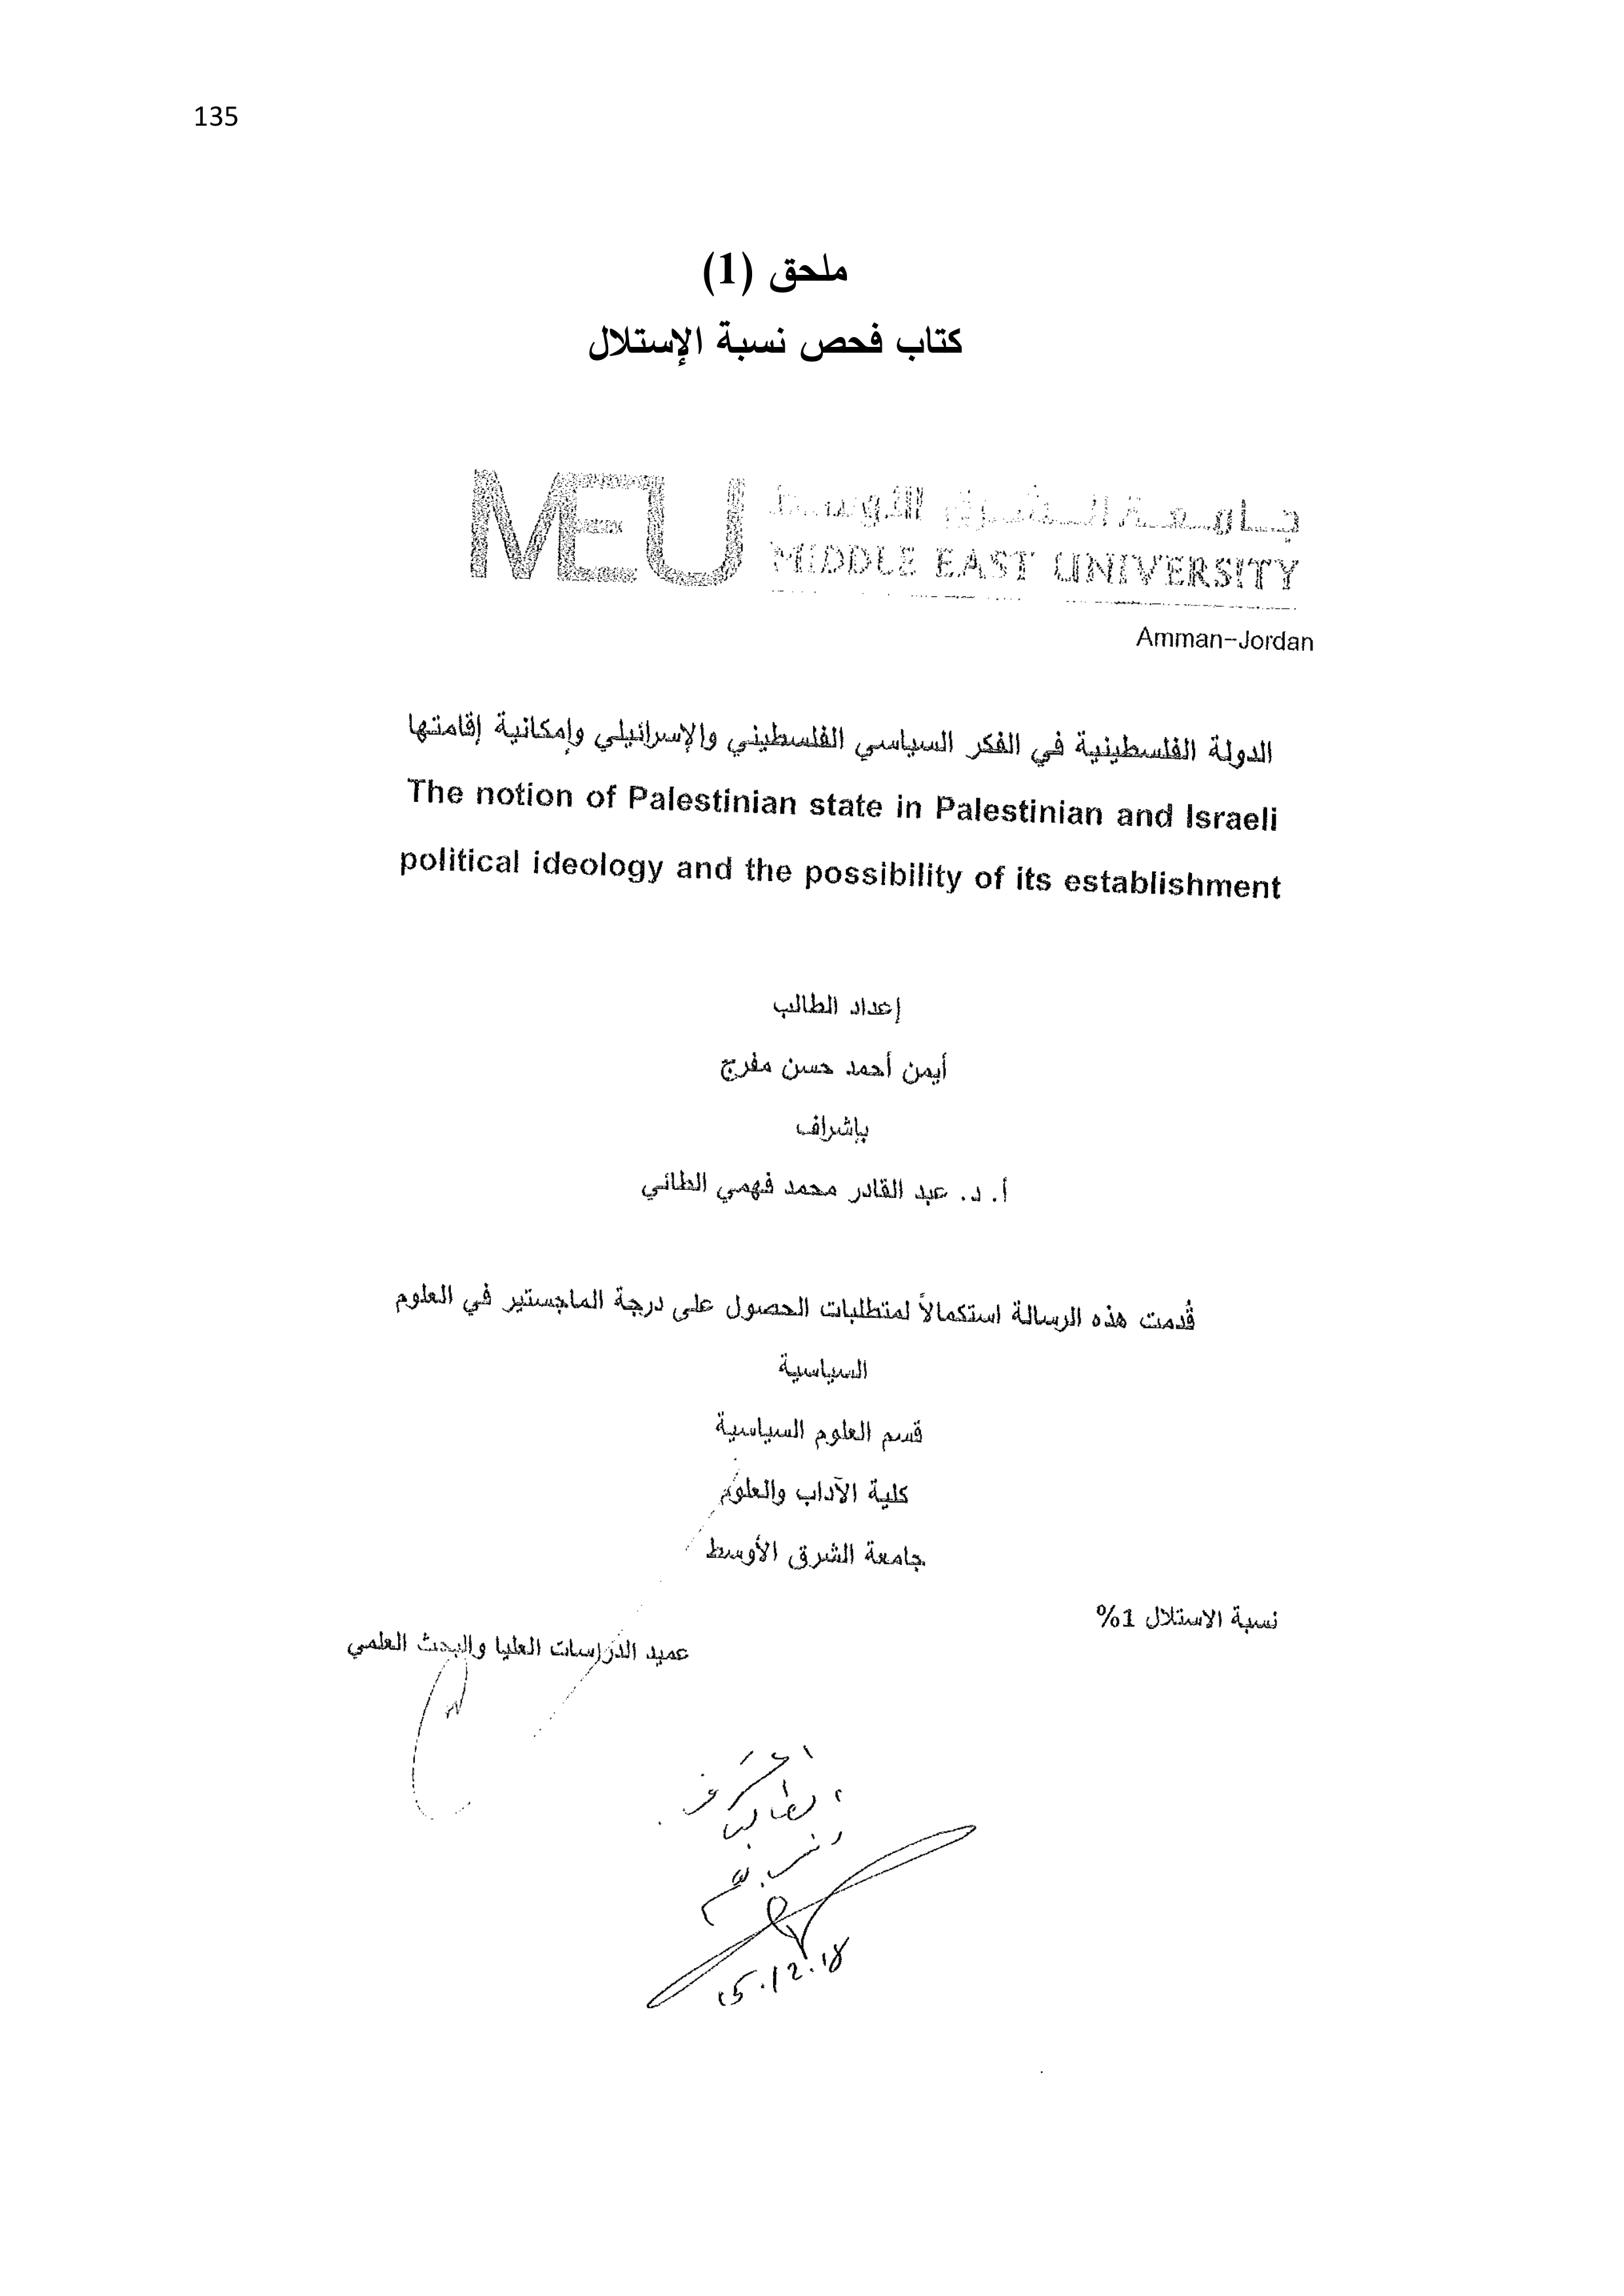 135
ملحق (1)
كتاب فحص نسبة الإستلال
MEU
جامعة الشرق الأوسط
MIDDLE EAST UNIVERSITY
Amman-Jordan
الدولة الفلسطينية في الفكر السياسي الفلسطيني والإسرائيلي وإمكانية إقامتها
The notion of Palestinian state in Palestinian and Israeli
political ideology and the possibility of its establishment
إعداد الطالب
أيمن أحمد حسن مفرج
بإشراف
أ. د. عبد القادر محمد فهمي الطائي
قُدمت هذه الرسالة استكمالاً لمتطلبات الحصول على درجة الماجستير في العلوم
السياسية
قسم العلوم السياسية
كلية الآداب والعلوم
جامعة الشرق الأوسط
نسبة الاستلال 1%
عميد الدراسات العليا والبحث العلمي
15.12.18